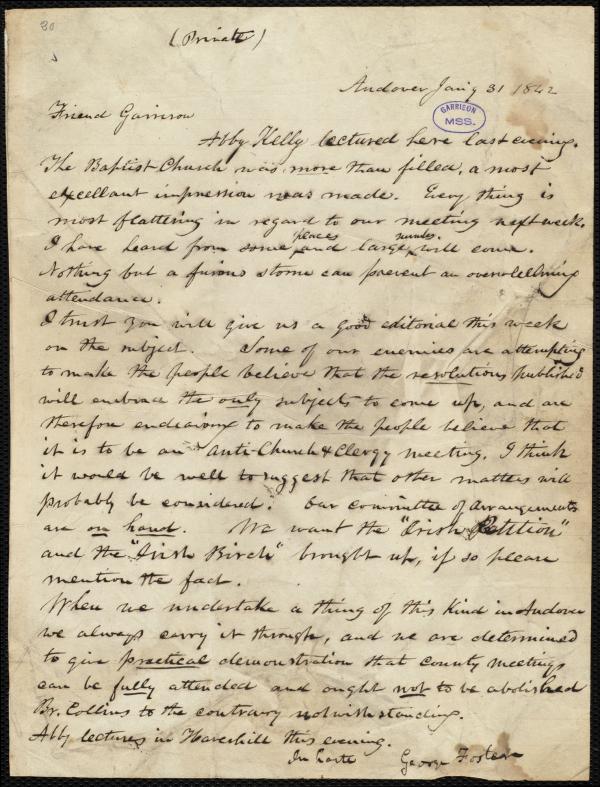 80
(Private)
Andover Jan'y 31 1842
GARRISON
MSS.
Friend Garrison
Abby Kelly lectured here last evening.
The Baptist Church was more than filled, a most
excellant impression was made. Every thing is
most flattering in regard to our meeting next week.
places numbs.
I have heard from some and large will come.
Nothing but a furious storm can prevent an overwelching
attendance.
I trust you will give us a good editorial this week
on the subject. Some of our enemies are attempting
to make the people believe that the resolutions published
will embrace the only subjects to come up, and are
therefore endeavoring to make the people believe that
it is to be an Anti-Church & Clergy meeting. I think
it would be well to suggest that other matters will
probably be considered. Our committee of arrangements
are on hand. We want the "Irish Petition"
and the "Irish Birch" brought up, if so please
mention the fact.
When we undertake a thing of this kind in Andover
we always carry it through, and we are determined
to give practical demonstration that county meetings
can be fully attended and ought not to be abolished
Br. Collins to the contrary notwithstanding.
Abby lectures in Haverhill this evening.
In haste George Foster